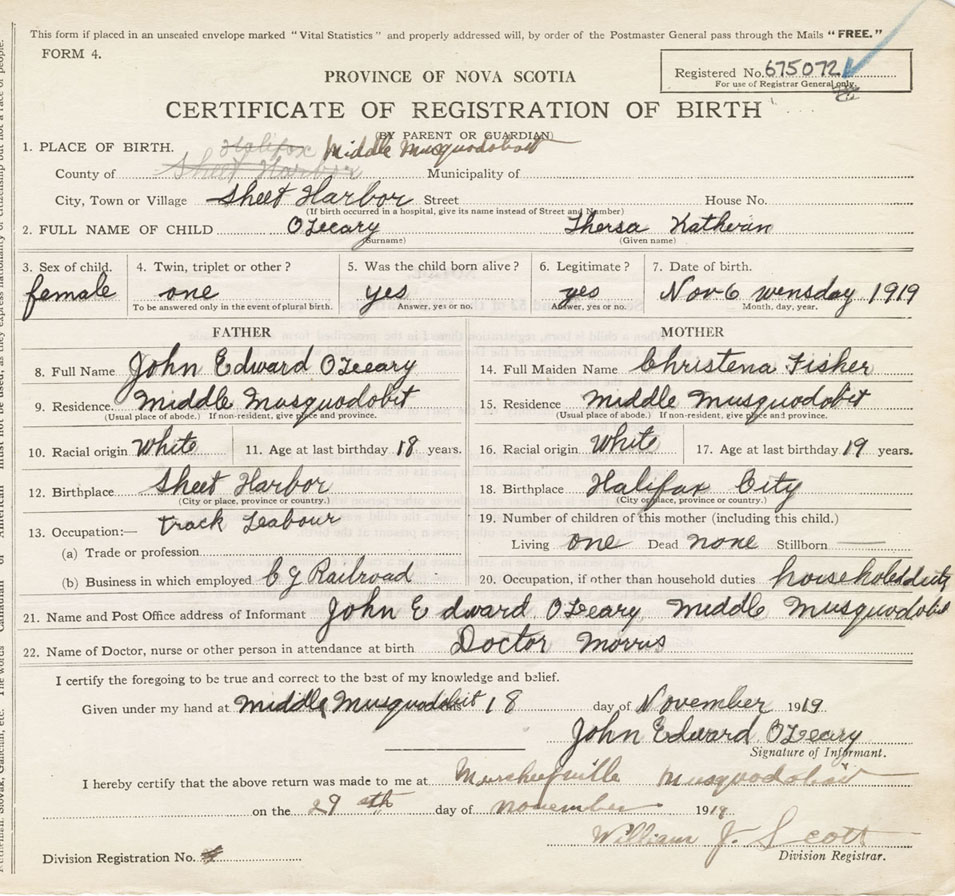 This form if placed in an unsealed envelope marked "Vital Statistics" and properly addressed will, by order of the Postmaster General pass through the Mails "FREE."
FORM 4.
Registered No. 675072
For use of Registrar General only.
PROVINCE OF NOVA SCOTIA
CERTIFICATE OF REGISTRATION OF BIRTH
(BY PARENT OR GUARDIAN)
1. PLACE OF BIRTH. Halifax Middle Musquodoboit
County of Sheet Harbor Municipality of
City, Town or Village Sheet Harbor Street House No.
(If birth occurred in a hospital, give its name instead of Street and Number)
2. FULL NAME OF CHILD O'Leary Thersa Katherin
(Surname) (Given name)
3. Sex of child. 4. Twin, triplet or other? 5. Was the child born alive? 6. Legitimate? 7. Date of birth.
female one yes yes Nov 6 wensday 1919
To be answered only in the event of plural birth. Answer, yes or no. Answer, yes or no. Month, day, year.
FATHER MOTHER
8. Full Name John Edward O'Leary 14. Full Maiden Name Christena Fisher
9. Residence. Middle Musquodobit 15. Residence Middle Musquodobit
(Usual place of abode.) If non-resident, give place and province. (Usual place of abode.) If non-resident, give place and province.
10. Racial origin White 11. Age at last birthday 18 years. 16. Racial origin White 17. Age at last birthday 19 years.
12. Birthplace Sheet Harbor 18. Birthplace Halifax City
(City or place, province or country.) (City or place, province or country.)
13. Occupation:— track Leabour 19. Number of children of this mother (including this child.)
(a) Trade or profession Living one Dead none Stillborn —
(b) Business in which employed C G Railroad 20. Occupation, if other than household duties
21. Name and Post Office address of Informant John Edward O'Leary Middle Musquodobit
22. Name of Doctor, nurse or other person in attendance at birth Doctor Morris
I certify the foregoing to be true and correct to the best of my knowledge and belief.
Given under my hand at Middle Musquodobit 18 day of November 1919
John Edward O'Leary
Signature of Informant.
I hereby certify that the above return was made to me at Musquodoboit
on the 29th day of November 1919
William J. Scott
Division Registrar.
Division Registration No.